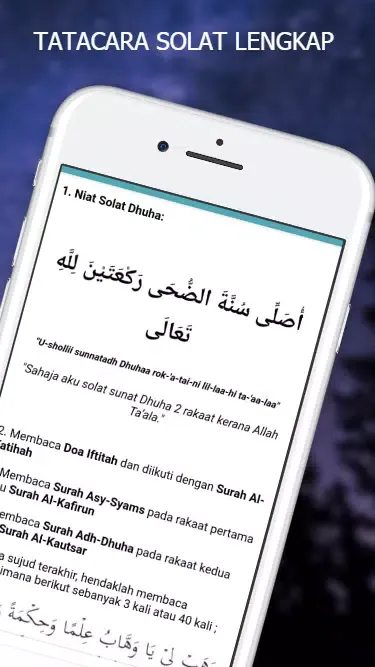 TATACARA SOLAT LENGKAP
1. Niat Solat Dhuha:
أُصَلِّى سُنَّةَ الضُّحَى رَكْعَتَيْنَ لِلَّهِ
تَعَالَى
"U-shollii sunnatadh Dhuhaa rok-'a-tai-ni lil-laa-hi ta-'aa-laa"
"Sahaja aku solat sunat Dhuha 2 rakaat kerana Allah
Ta'ala."
2. Membaca Doa Iftitah dan diikuti dengan Surah Al-
Fatihah
Membaca Surah Asy-Syams pada rakaat pertama
u Surah Al-Kafirun
embaca Surah Adh-Dhuha pada rakaat kedua
Surah Al-Kautsar
a sujud terakhir, hendaklah membaca
imana berikut sebanyak 3 kali atau 40 kali ;
وَهَبْ لِيْ يَا وَهَّابُ عِلْمًا وَحِكْمَةً